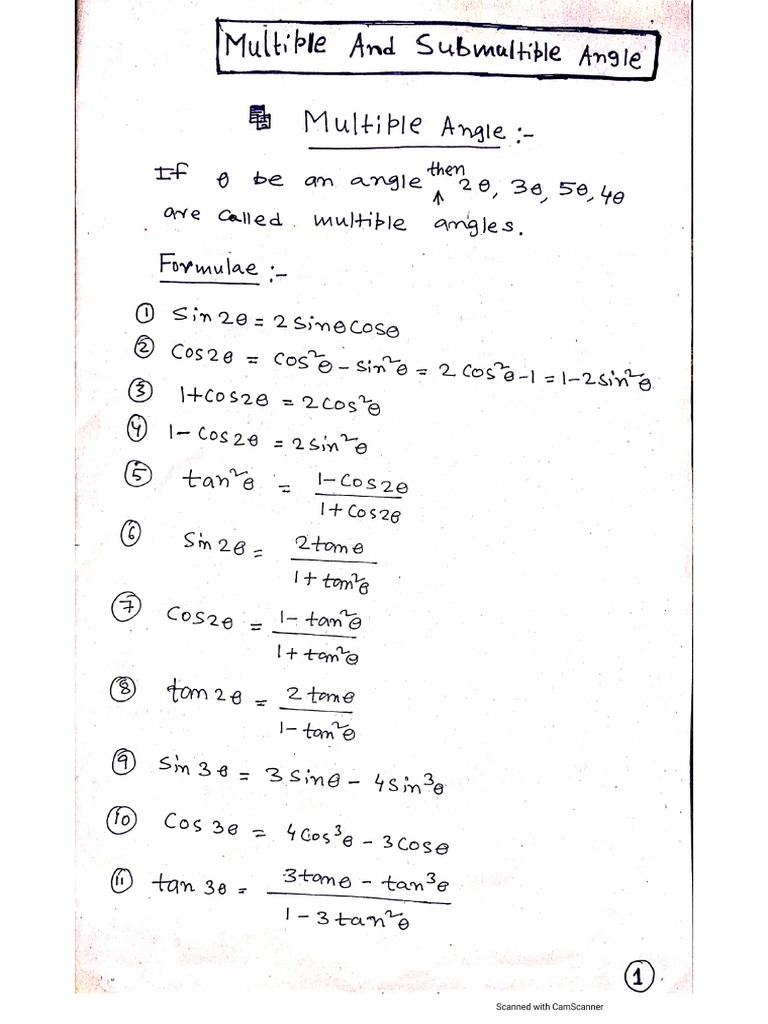 Multiple And Submultiple Angle
Multiple Angle :-
If θ be an angle then 2θ, 3θ, 5θ, 4θ
are called multiple angles.
Formulae :-
① Sin2θ = 2 sinθ cosθ
② Cos2θ = Cos²θ - Sin²θ = 2 Cos²θ - 1 = 1 - 2 Sin²θ
③ 1 + Cos2θ = 2 Cos²θ
④ 1 - Cos2θ = 2 sin²θ
⑤ tan²θ = (1 - Cos2θ) / (1 + Cos2θ)
⑥ Sin2θ = 2 tanθ / (1 + tan²θ)
⑦ Cos2θ = (1 - tan²θ) / (1 + tan²θ)
⑧ tan2θ = 2 tanθ / (1 - tan²θ)
⑨ Sin3θ = 3 Sinθ - 4 Sin³θ
⑩ Cos3θ = 4 Cos³θ - 3 Cosθ
⑪ tan3θ = (3 tanθ - tan³θ) / (1 - 3 tan²θ)
①
Scanned with CamScanner